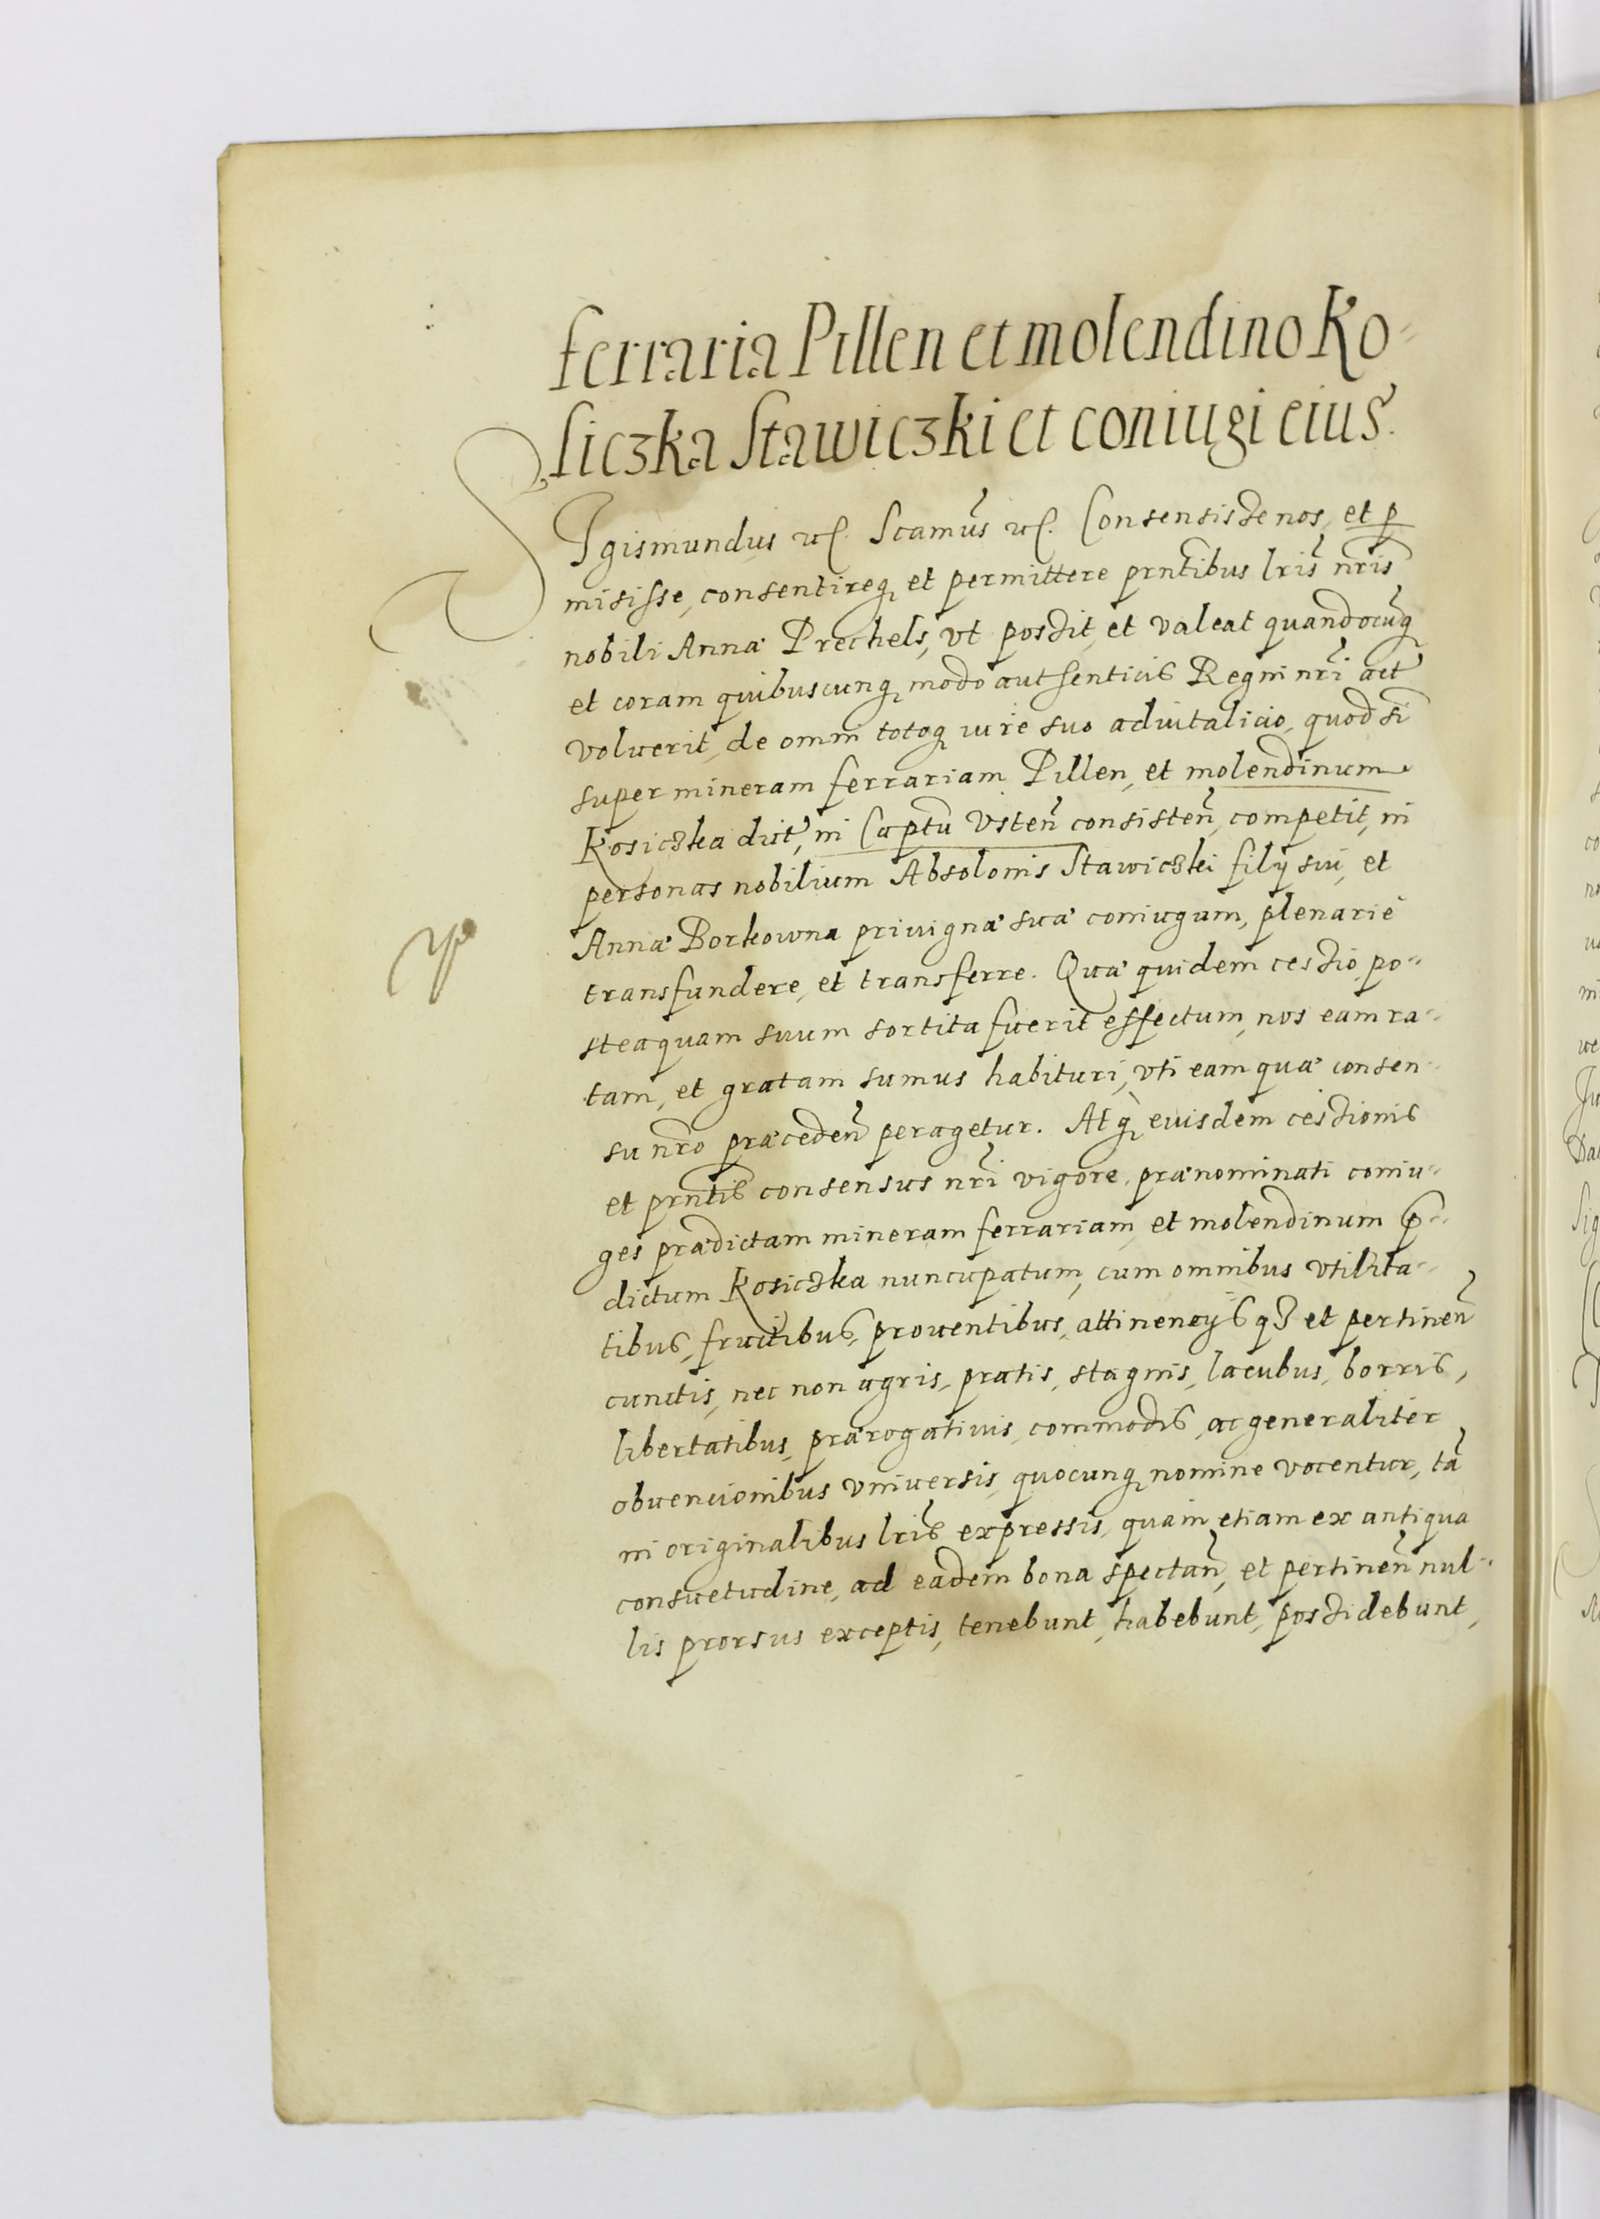 ferraria Pillen et molendino Ko-
siczka Stawiczki et coniugi eius.
Sigismundus etc. Scamus etc. Consensisse nos, et p
misisse, consentireq et permittere prntibus lris nris
nobili Annæ Prechels, vt possit, et valeat quandocuq
et coram quibuscunq modo autsenticis Regni nri act
voluerit, de omni totoq iure suo aduitalicio, quod si
super mineram ferrariam Pillen, et molendinum
Kosiczka dict, in Captu Vsten consisten, competit, in
personas nobilium Absolonis Stawiczki filij sui, et
Annæ Borkowna priuignæ suæ coniugum, plenarie
transfundere, et transferre. Quæ quidem cessio, po-
steaquam suum sortita fuerit effectum, nos eam ra-
tam, et gratam sumus habituri, vti eam quæ consen-
su nro præceden peragetur. Atq euisdem cessionis
et prntis consensus nri vigore, prænominati coniu-
ges prædictam mineram ferrariam, et molendinum p-
dictum Kosiczka nuncupatum, cum omnibus vtilita-
tibus, fructibus, prouentibus, attinencijs qz et pertinen
cunctis, nec non agris, pratis, stagnis, lacubus, borris,
libertatibus, prærogatiuis, commodis, ac generaliter
obuencionibus vniuersis, quocunq nomine vocentur, ta
in originalibus lris expressis, quam etiam ex antiqua
consuetudine, ad eadem bona spectan, et pertinen nul-
lis prorsus exceptis, tenebunt, habebunt, possidebunt,